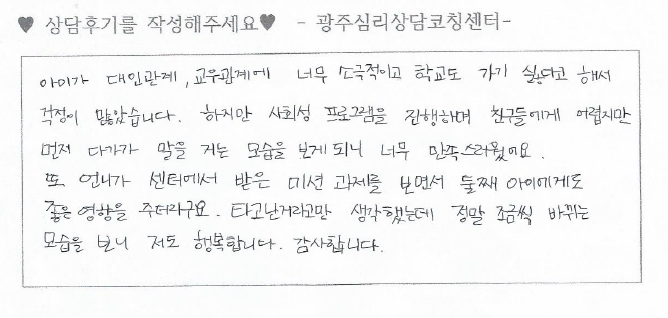 ♥ 상담후기를 작성해주세요♥ - 광주심리상담코칭센터-
아이가 대인관계, 교우관계에 너무 소극적이고 학교도 가기 싫다고 해서
걱정이 많았습니다. 하지만 사회성 프로그램을 진행하며 친구들에게 어렵지만
먼저 다가가 말을 거는 모습을 보게 되니 너무 만족스러웠어요.
또 언니가 센터에서 받은 미션 과제를 보면서 둘째 아이에게도
좋은 영향을 주더라구요. 타고난거라고만 생각했는데 정말 조금씩 바뀌는
모습을 보니 저도 행복합니다. 감사합니다.